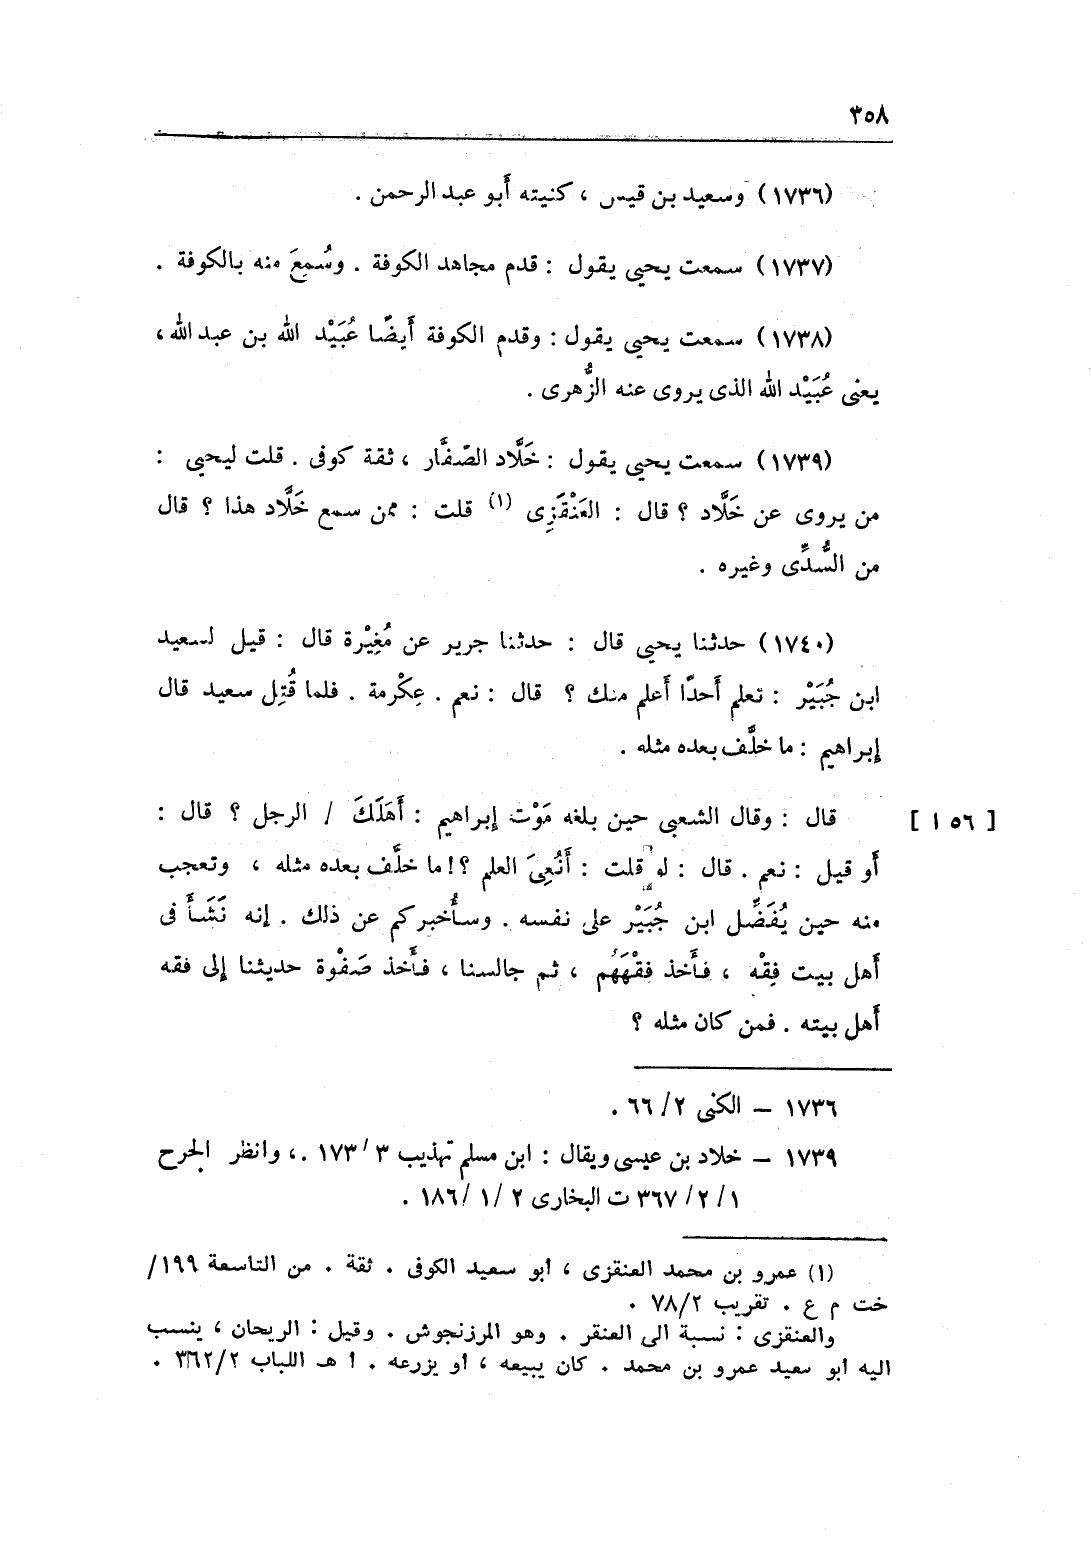 ٣٥٨
(١٧٣٦) وسعيد بن قيس ، كنيته أَبو عبد الرحمن .
(١٧٣٧) سمعت يحيى يقول : قدم مجاهد الكوفة . وسُمِعَ منه بالكوفة .
(١٧٣٨) سمعت يحيى يقول : وقدم الكوفة أَيضًا عُبَيْد الله بن عبد الله ،
يعنى عُبَيْد الله الذى يروى عنه الزُّهرى .
(١٧٣٩) سمعت يحيى يقول : خَلَّاد الصّفَّار ، ثقة كوفى . قلت ليحيى :
من يروى عن خَلَّاد ؟ قال : العَنْقَزِى (١) قلت : ممن سمع خَلَّاد هذا ؟ قال
من السُّدِّى وغيره .
(١٧٤٠) حدثنا يحيى قال : حدثنا جرير عن مُغِيْرة قال : قيل لسعيد
ابن جُبَيْر : تعلم أَحدًا أَعلم منك ؟ قال : نعم . عِكْرمة . فلما قُتِل سعيد قال
إبراهيم : ما خلَّف بعده مثله .
قال : وقال الشعبى حين بلغه مَوْت إبراهيم : أَهَلَكَ / الرجل ؟ قال : [١٥٦]
أَو قيل : نعم . قال : لو قلت : أَنُعِىَ العلم ؟! ما خلَّف بعده مثله ، وتعجب
منه حين يُفَضِّل ابن جُبَيْر على نفسه . وسأُخبركم عن ذلك . إنه نَشَأَ فى
أَهل بيت فِقْه ، فأَخذ فقْهَهُم ، ثم جالسنا ، فأَخذ صَفْوة حديثنا إلى فقه
أَهل بيته . فمن كان مثله ؟
١٧٣٦ – الكنى ٢/ ٦٦ .
١٧٣٩ – خلاد بن عيسى ويقال : ابن مسلم تهذيب ٣ /١٧٣ .، وانظر الجرح
١/ ٢/ ٣٦٧ ت البخارى ٢ /١ /١٨٦ .
(١) عمرو بن محمد العنقزى ، ابو سعيد الكوفى . ثقة . من التاسعة ١٩٩/
خت م ع . تقريب ٧٨/٢ .
والعنقزى : نسبة الى العنقر . وهو المرزنجوش . وقيل : الريحان ، ينسب
اليه ابو سعيد عمرو بن محمد . كان يبيعه ، او يزرعه . ا هـ اللباب ٣٦٢/٢ .